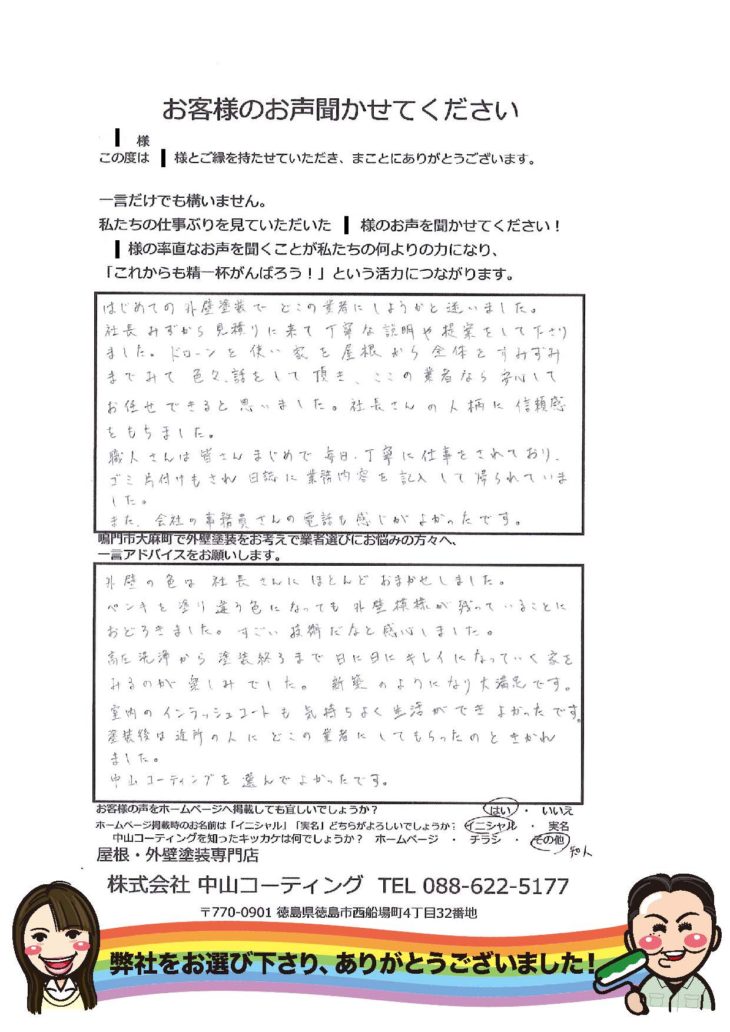 お客様のお声聞かせてください
様
この度は 様とご縁を持たせていただき、まことにありがとうございます。
一言だけでも構いません。
私たちの仕事ぶりを見ていただいた 様のお声を聞かせてください！
様の率直なお声を聞くことが私たちの何よりの力になり、
「これからも精一杯がんばろう！」という活力につながります。
はじめての外壁塗装で どこの業者にしようかと迷いました。
社長みずから見積りに来て丁寧な説明や提案をして下さり
ました。ドローンを使い家を屋根から全体とすみずみ
までみて色々話をして頂き、ここの業者なら安心して
お任せできると思いました。社長さんの人柄に信頼感
をもちました。
職人さんは皆さんまじめで毎日、丁寧に仕事をされており、
ゴミ片付けもされ日誌に業務内容を記入して帰られていま
した。
また、会社の事務員さんの電話も感じがよかったです。
鳴門市大麻町で外壁塗装をお考えで業者選びにお悩みの方々へ、
一言アドバイスをお願いします。
外壁の色は社長さんにほとんどおまかせしました。
ペンキを塗り違う色になっても外壁模様が残っていることに
おどろきました。すごい技術だなと感心しました。
高圧洗浄から塗装終るまで日に日にキレイになっていく家を
みるのが楽しみでした。新築のようになり大満足です。
室内のインラッシュコートも気持ちよく生活ができよかったです。
塗装後は近所の人にどこの業者にしてもらったのときかれ
ました。
中山コーティングを選んでよかったです。
お客様の声をホームページへ掲載しても宜しいでしょうか？ はい ・ いいえ
ホームページ掲載時のお名前は「イニシャル」「実名」どちらがよろしいでしょうか？ イニシャル ・ 実名
中山コーティングを知ったキッカケは何でしょうか？ ホームページ ・ チラシ ・ その他 知人
屋根・外壁塗装専門店
株式会社 中山コーティング TEL 088-622-5177
〒770-0901 徳島県徳島市西船場町4丁目32番地
弊社をお選び下さり、ありがとうございました！